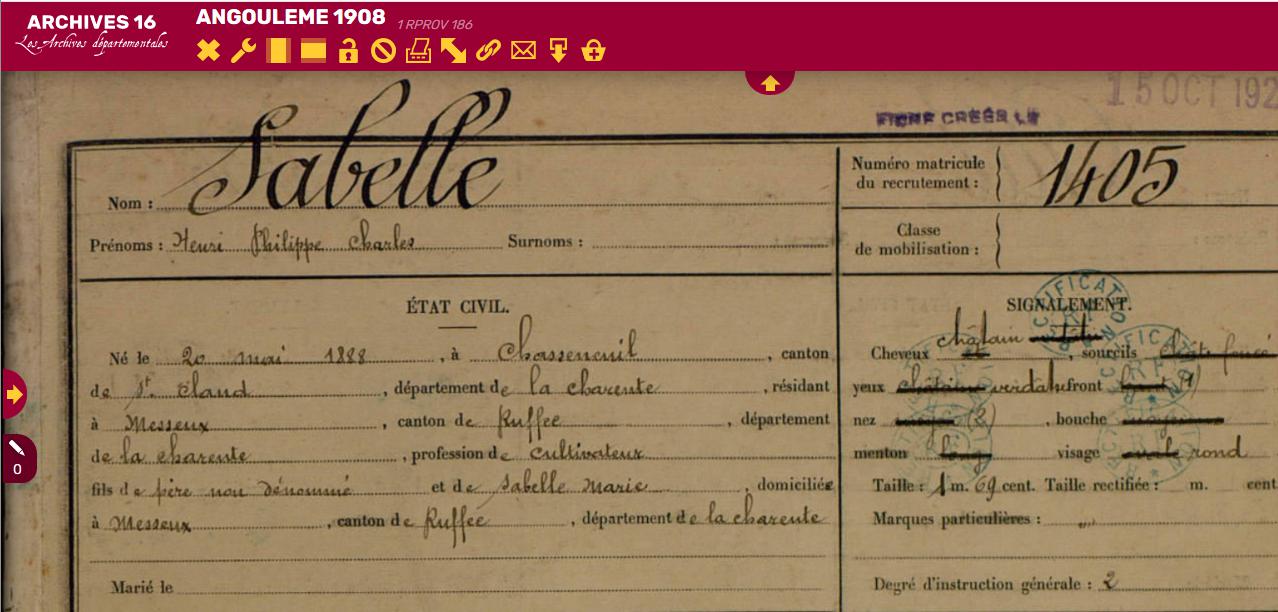 ARCHIVES 16
Les Archives départementales
ANGOULEME 1908 1 RPROV 186
15 OCT 192
FICHE CRÉÉE LE
Nom : Sabelle
Prénoms : Henri Philippe Charles Surnoms :
Numéro matricule du recrutement : 1405
Classe de mobilisation :
ÉTAT CIVIL.
Né le 20 mai 1888, à Chasseneuil, canton
de St Claud, département de la charente, résidant
à Messeux, canton de Ruffec, département
de la charente, profession de cultivateur
fils de père non dénommé et de Sabelle Marie, domiciliée
à Messeux, canton de Ruffec, département de la charente
Marié le
SIGNALEMENT.
Cheveux châtain, sourcils chât. foncé
yeux châtains verdat front
nez (2), bouche
menton long visage ovale rond
Taille : 1 m. 69 cent. Taille rectifiée : m. cent
Marques particulières : „„
Degré d'instruction générale : 2
0